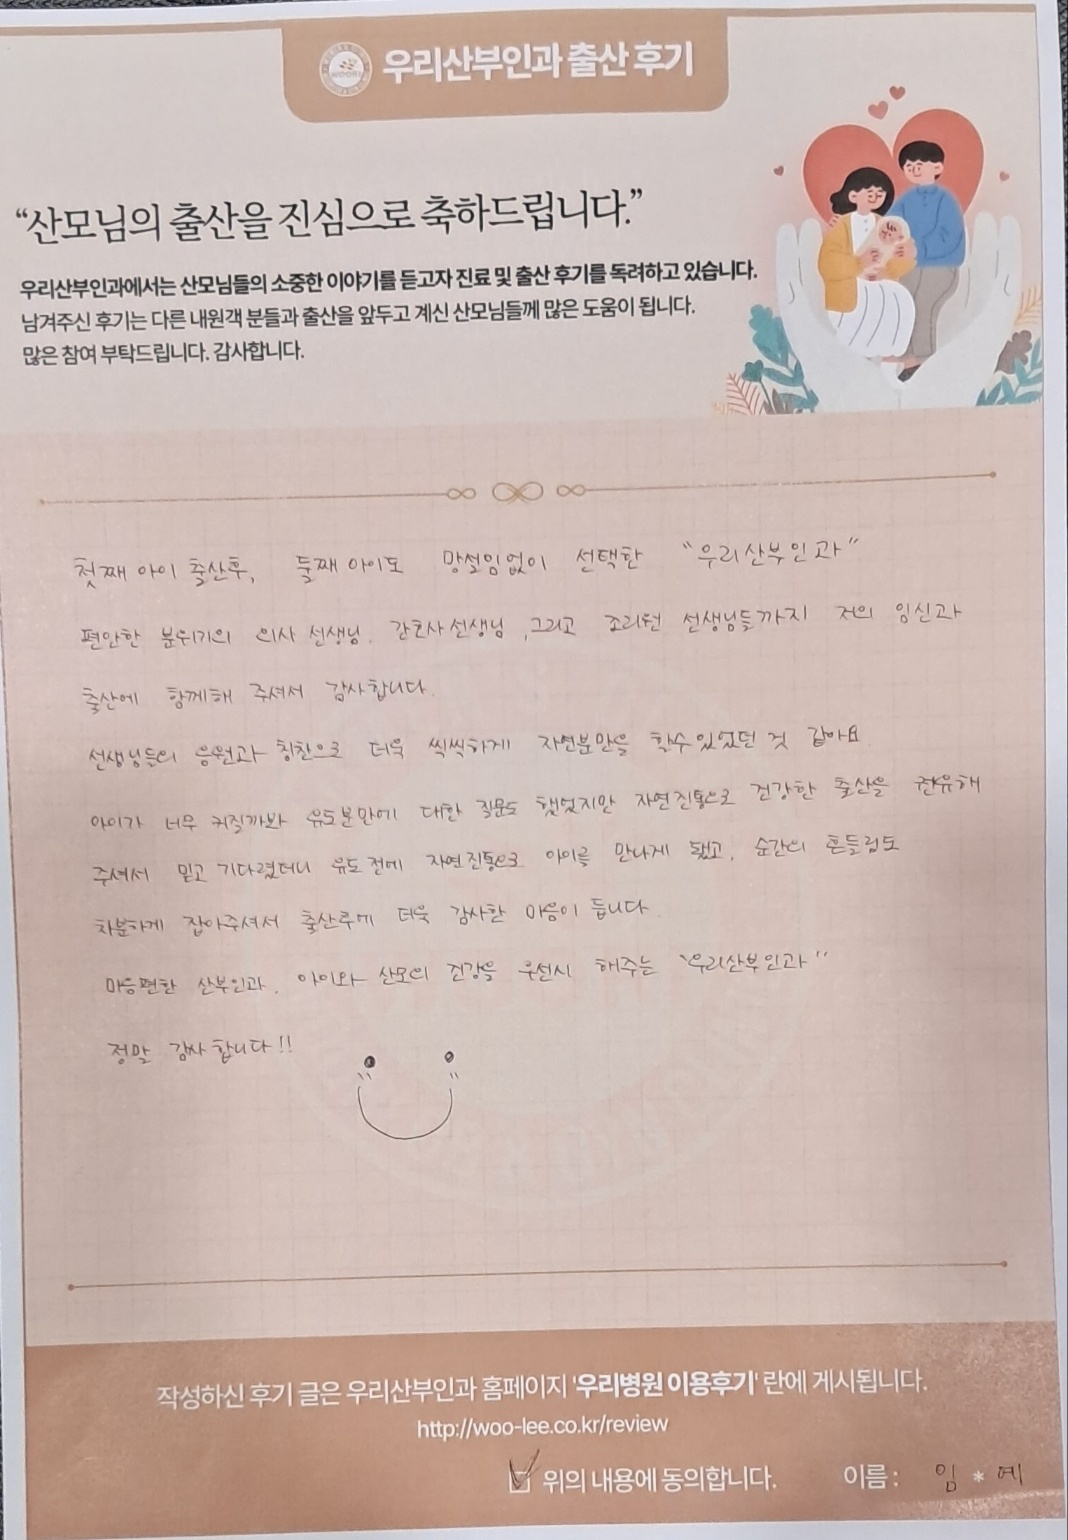 우리산부인과 출산 후기
“산모님의 출산을 진심으로 축하드립니다.”
우리산부인과에서는 산모님들의 소중한 이야기를 듣고자 진료 및 출산 후기를 독려하고 있습니다.
남겨주신 후기는 다른 내원객 분들과 출산을 앞두고 계신 산모님들께 많은 도움이 됩니다.
많은 참여 부탁드립니다. 감사합니다.
첫째 아이 출산후, 둘째 아이도 망설임없이 선택한 “우리산부인과”
편안한 분위기의 의사 선생님, 간호사 선생님, 그리고 조리원 선생님들까지 저의 임신과
출산에 함께해 주셔서 감사합니다.
선생님들의 응원과 칭찬으로 더욱 씩씩하게 자연분만을 할수있었던 것 같아요
아이가 너무 커질까봐 유도분만에 대한 질문도 했었지만 자연진통으로 건강한 출산을 권유해
주셔서 믿고 기다렸더니 유도전에 자연진통으로 아이를 만나게 됐고, 순간의 흔들림도
차분하게 잡아주셔서 출산후에 더욱 감사한 마음이 듭니다.
마음편한 산부인과, 아이와 산모의 건강을 우선시 해주는 “우리산부인과”
정말 감사합니다!!
작성하신 후기 글은 우리산부인과 홈페이지 '우리병원 이용후기' 란에 게시됩니다.
http://woo-lee.co.kr/review
위의 내용에 동의합니다. 이름 : 임 * 예